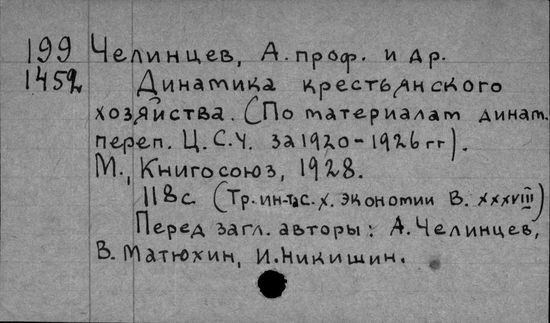 199 Челинцев, А. проф. и др.
1452 Динамика крестьянского
хозяйства. (По материалам динам.
переп. Ц.С.У. за 1920-1926 гг).
М., Книгосоюз, 1928.
118 с. (Тр. ин-та с.х. экономии В. XXXVIII)
Перед загл. авторы: А. Челинцев,
В. Матюхин, И. Никишин.